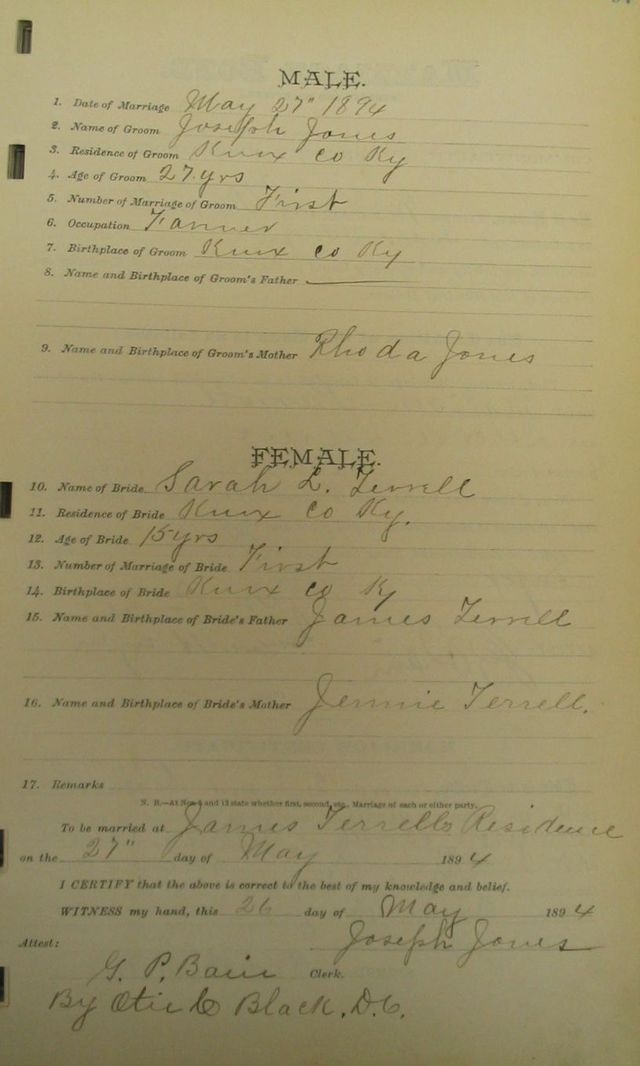 MALE.
1. Date of Marriage May 27" 1894
2. Name of Groom Joseph Jones
3. Residence of Groom Knox Co Ky
4. Age of Groom 27 yrs
5. Number of Marriage of Groom First
6. Occupation Farmer
7. Birthplace of Groom Knox Co Ky
8. Name and Birthplace of Groom's Father
9. Name and Birthplace of Groom's Mother Rhoda Jones
FEMALE.
10. Name of Bride Sarah L. Terrell
11. Residence of Bride Knox Co Ky.
12. Age of Bride 15 yrs
13. Number of Marriage of Bride First
14. Birthplace of Bride Knox Co Ky
15. Name and Birthplace of Bride's Father James Terrell
16. Name and Birthplace of Bride's Mother Jennie Terrell.
17. Remarks
N. B.—At Nos. 5 and 13 state whether first, second, etc., Marriage of each or either party.
To be married at James Terrells Residence
on the 27" day of May 1894
I CERTIFY that the above is correct to the best of my knowledge and belief.
WITNESS my hand, this 26 day of May 1894
Joseph Jones
Attest:
G. P. Bain Clerk.
By Black, D.C.